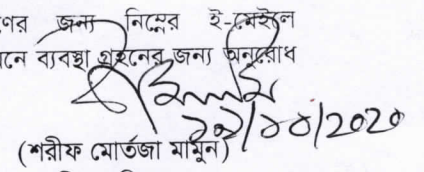 ণের জন্য নিম্নের ই-মেইলে
নে ব্যবস্থা গ্রহনের জন্য অনুরোধ
/১০/2020
(শরীফ মোর্তজা মামুন)